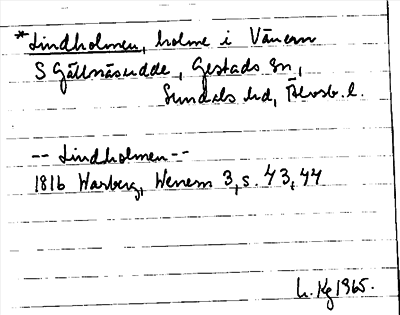 *Lindholmen, holme i Vänern
S Gällnäsudde, Gestads sn,
Sundals hd, Älvsb. l.
-- Lindholmen --
1816 Warberg, Wenern 3, s. 43, 44
L. Kg 1965.